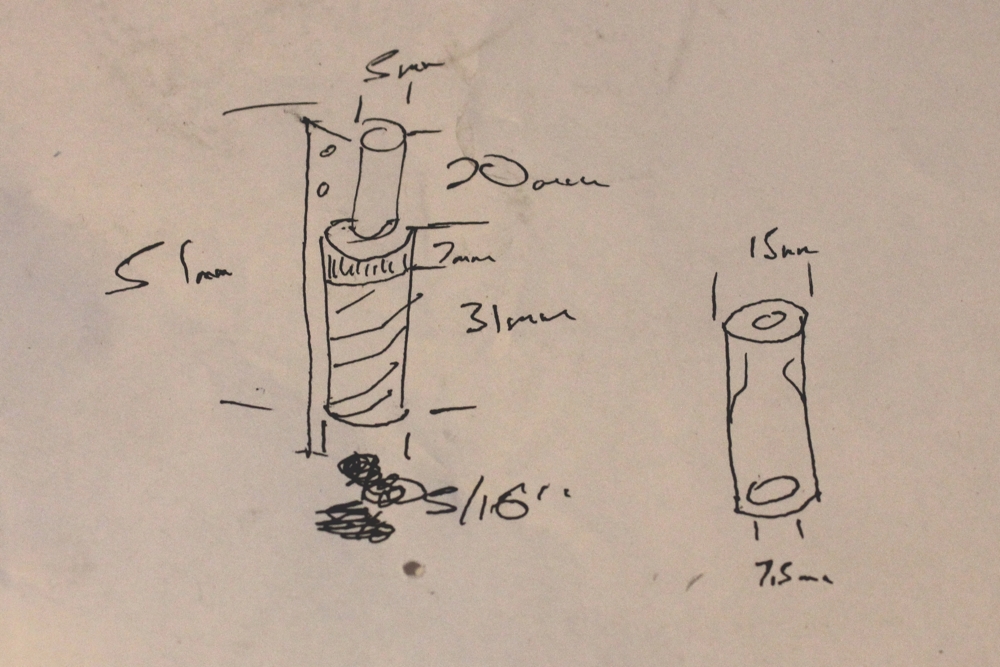 5mm
20mm
2mm
51mm
31mm
5/16"
15mm
7.5mm